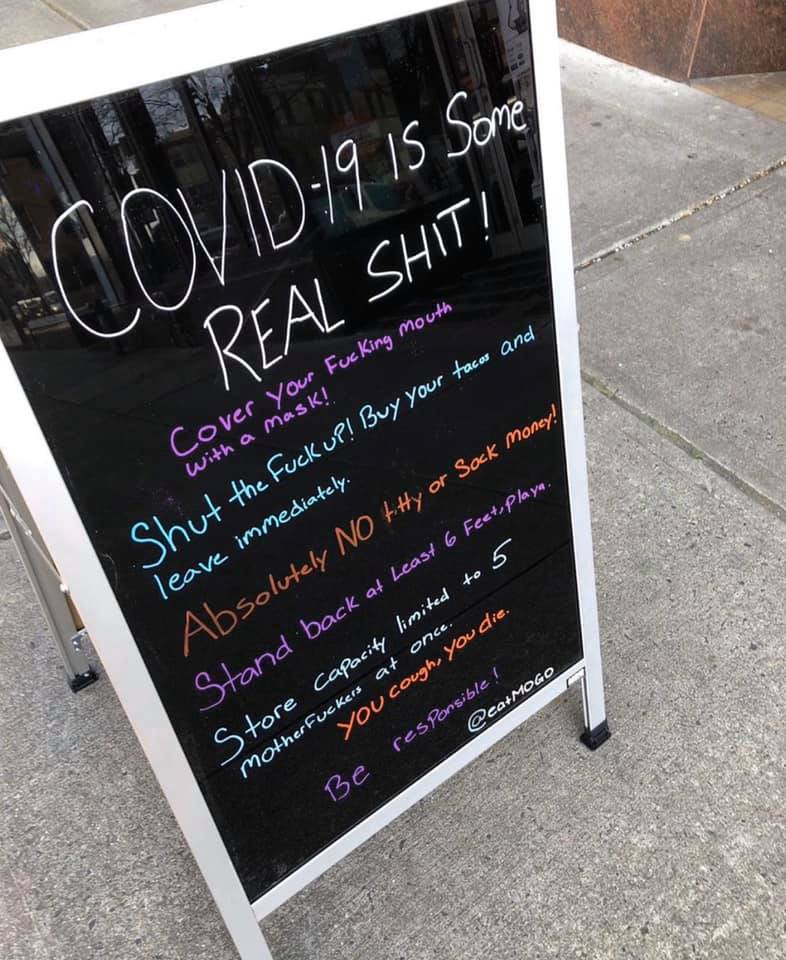 COVID-19 IS Some
REAL SHIT!
Cover your Fucking Mouth
with a mask!
Shut the Fuck uP! Buy your tacos and
leave immediately.
Absolutely NO titty or Sock Money!
Stand back at Least 6 Feet, playa.
Store Capacity limited to 5
motherfuckers at once.
you cough, you die.
Be resPonsible!
@eatMOGO